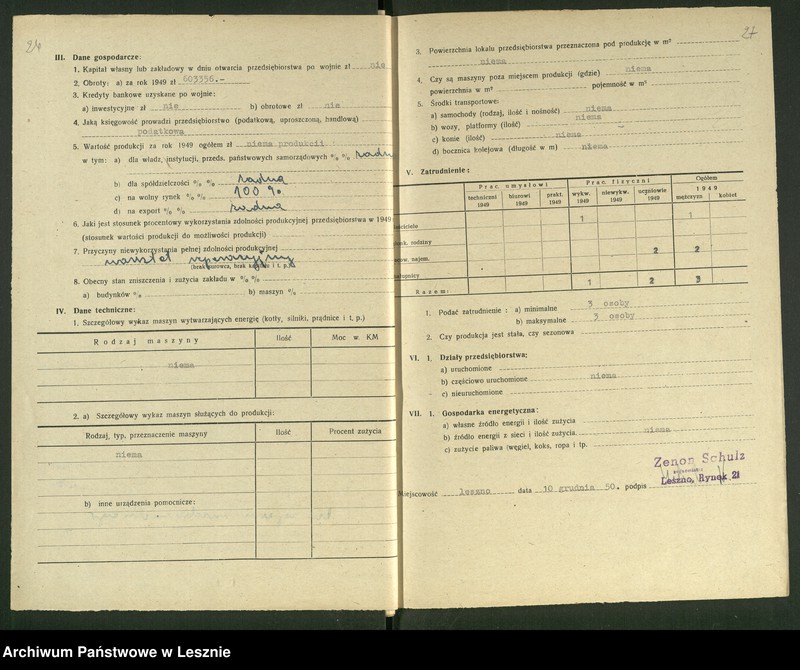 24
III. Dane gospodarcze:
1. Kapitał własny lub zakładowy w dniu otwarcia przedsiębiorstwa po wojnie zł nie
2. Obroty: a) za rok 1949 zł 603356.-
3. Kredyty bankowe uzyskane po wojnie:
a) inwestycyjne zł nie b) obrotowe zł nie
4. Jaką księgowość prowadzi przedsiębiorstwo (podatkową, uproszczoną, handlową)
podatkowa
5. Wartość produkcji za rok 1949 ogółem zł niema produkcji
w tym: a) dla władz, instytucji, przeds. państwowych samorządowych % %
b) dla spółdzielczości % % żadna
c) na wolny rynek % % 100 %
d) na export % % żadna
6. Jaki jest stosunek procentowy wykorzystania zdolności produkcyjnej przedsiębiorstwa w 1949
(stosunek wartości produkcji do możliwości produkcji)
7. Przyczyny niewykorzystania pełnej zdolności produkcyjnej
warsztat reperacyjny
(brak surowca, brak kapitału i t. p.)
8. Obecny stan zniszczenia i zużycia zakładu w % %
a) budynków % b) maszyn %
IV. Dane techniczne:
1. Szczegółowy wykaz maszyn wytwarzających energię (kotły, silniki, prądnice i t. p.)
Rodzaj maszyny Ilość Moc w. KM
niema
2. a) Szczegółowy wykaz maszyn służących do produkcji:
Rodzaj, typ, przeznaczenie maszyny Ilość Procent zużycia
niema
b) inne urządzenia pomocnicze:
27
3. Powierzchnia lokalu przedsiębiorstwa przeznaczona pod produkcję w m²
niema
4. Czy są maszyny poza miejscem produkcji (gdzie) niema
powierzchnia w m² pojemność w m³
5. Środki transportowe:
a) samochody (rodzaj, ilość i nośność) niema
b) wozy, platformy (ilość) niema
c) konie (ilość) niema
d) bocznica kolejowa (długość w m) niema
V. Zatrudnienie:
Prac. umysłowi Prac. fizyczni Ogółem
techniczni 1949 biurowi 1949 prakt. 1949 wykw. 1949 niewykw. 1949 uczniowie 1949 1949 mężczyzn kobiet
1 1
rodziny
najem. 2 2
Razem: 1 2 3
1. Podać zatrudnienie: a) minimalne 3 osoby
b) maksymalne 3 osoby
2. Czy produkcja jest stała, czy sezonowa
VI. 1. Działy przedsiębiorstwa;
a) uruchomione
b) częściowo uruchomione niema
c) nieuruchomione
VII. 1. Gospodarka energetyczna:
a) własne źródło energii i ilość zużycia
b) źródło energii z sieci i ilość zużycia niema
c) zużycie paliwa (węgiel, koks, ropa i tp.
Zenon Schulz
Leszno, Rynek 21
Miejscowość Leszno data 10 grudnia 50. podpis
Archiwum Państwowe w Lesznie